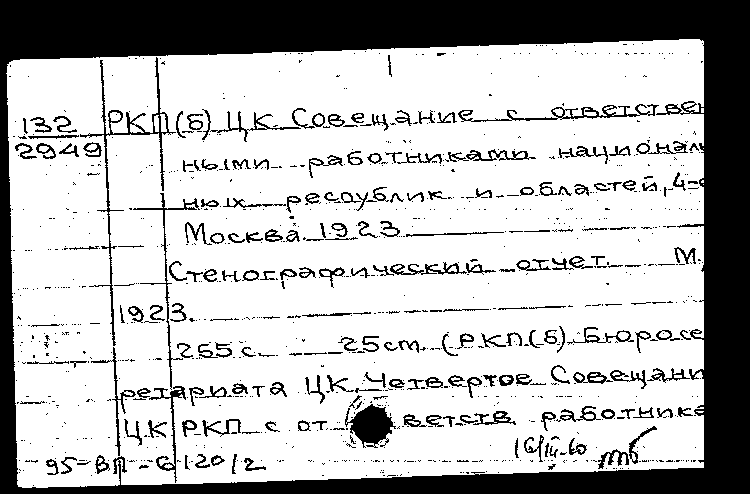 132 РКП(б) ЦК Совещание с ответствен
2949 ными работниками националь
ных республик и областей, 4-е
Москва 1923
Стенографический отчет. М.,
1923.
265 с. 25 cm. (РКП(б) Бюро се
ретариата ЦК. Четвертое Совещани
ЦК РКП с от ветств. работника
95-ВП-6120/2 16/III-60